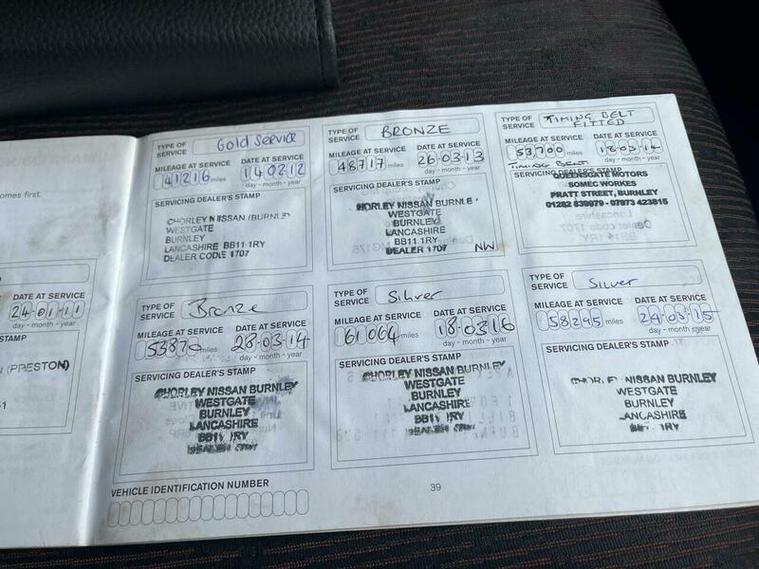 omes first.
DATE AT SERVICE
24-01-11
day - month - year
STAMP
(PRESTON)
TYPE OF SERVICE
Gold Service
MILEAGE AT SERVICE
DATE AT SERVICE
41216 miles
14 02 12
day - month - year
SERVICING DEALER'S STAMP
CHORLEY NISSAN (BURNLEY)
WESTGATE
BURNLEY
LANCASHIRE BB11 1RY
DEALER CODE 1707
TYPE OF SERVICE
BRONZE
MILEAGE AT SERVICE
DATE AT SERVICE
48717 miles
26-03-13
day - month - year
SERVICING DEALER'S STAMP
HORLEY NISSAN BURNLE
WESTGATE
BURNLEY
LANCASHIRE
BB11 1RY
DEALER 1707
NW
TYPE OF SERVICE
TIMING BELT
FITTED
MILEAGE AT SERVICE
DATE AT SERVICE
53,700 miles
day - month - year
TIMING BELT
SERVICING DEALER'S STAMP
QUEENSGATE MOTORS
SOMEC WORKES
PRATT STREET, BURNLEY
01282 839979 - 07973 423815
TYPE OF SERVICE
Bronze
MILEAGE AT SERVICE
DATE AT SERVICE
53876 miles
28-03-14
day - month - year
SERVICING DEALER'S STAMP
CHORLEY NISSAN BURNLEY
WESTGATE
BURNLEY
LANCASHIRE
BB11 1RY
TYPE OF SERVICE
Silver
MILEAGE AT SERVICE
DATE AT SERVICE
61064 miles
18-03-16
day - month - year
SERVICING DEALER'S STAMP
CHORLEY NISSAN BURNLEY
WESTGATE
BURNLEY
LANCASHIRE
BB11 1RY
TYPE OF SERVICE
Silver
MILEAGE AT SERVICE
DATE AT SERVICE
58295 miles
24-03-15
day - month - year
SERVICING DEALER'S STAMP
NISSAN BURNLEY
WESTGATE
BURNLEY
LANCASHIRE
1RY
VEHICLE IDENTIFICATION NUMBER
39